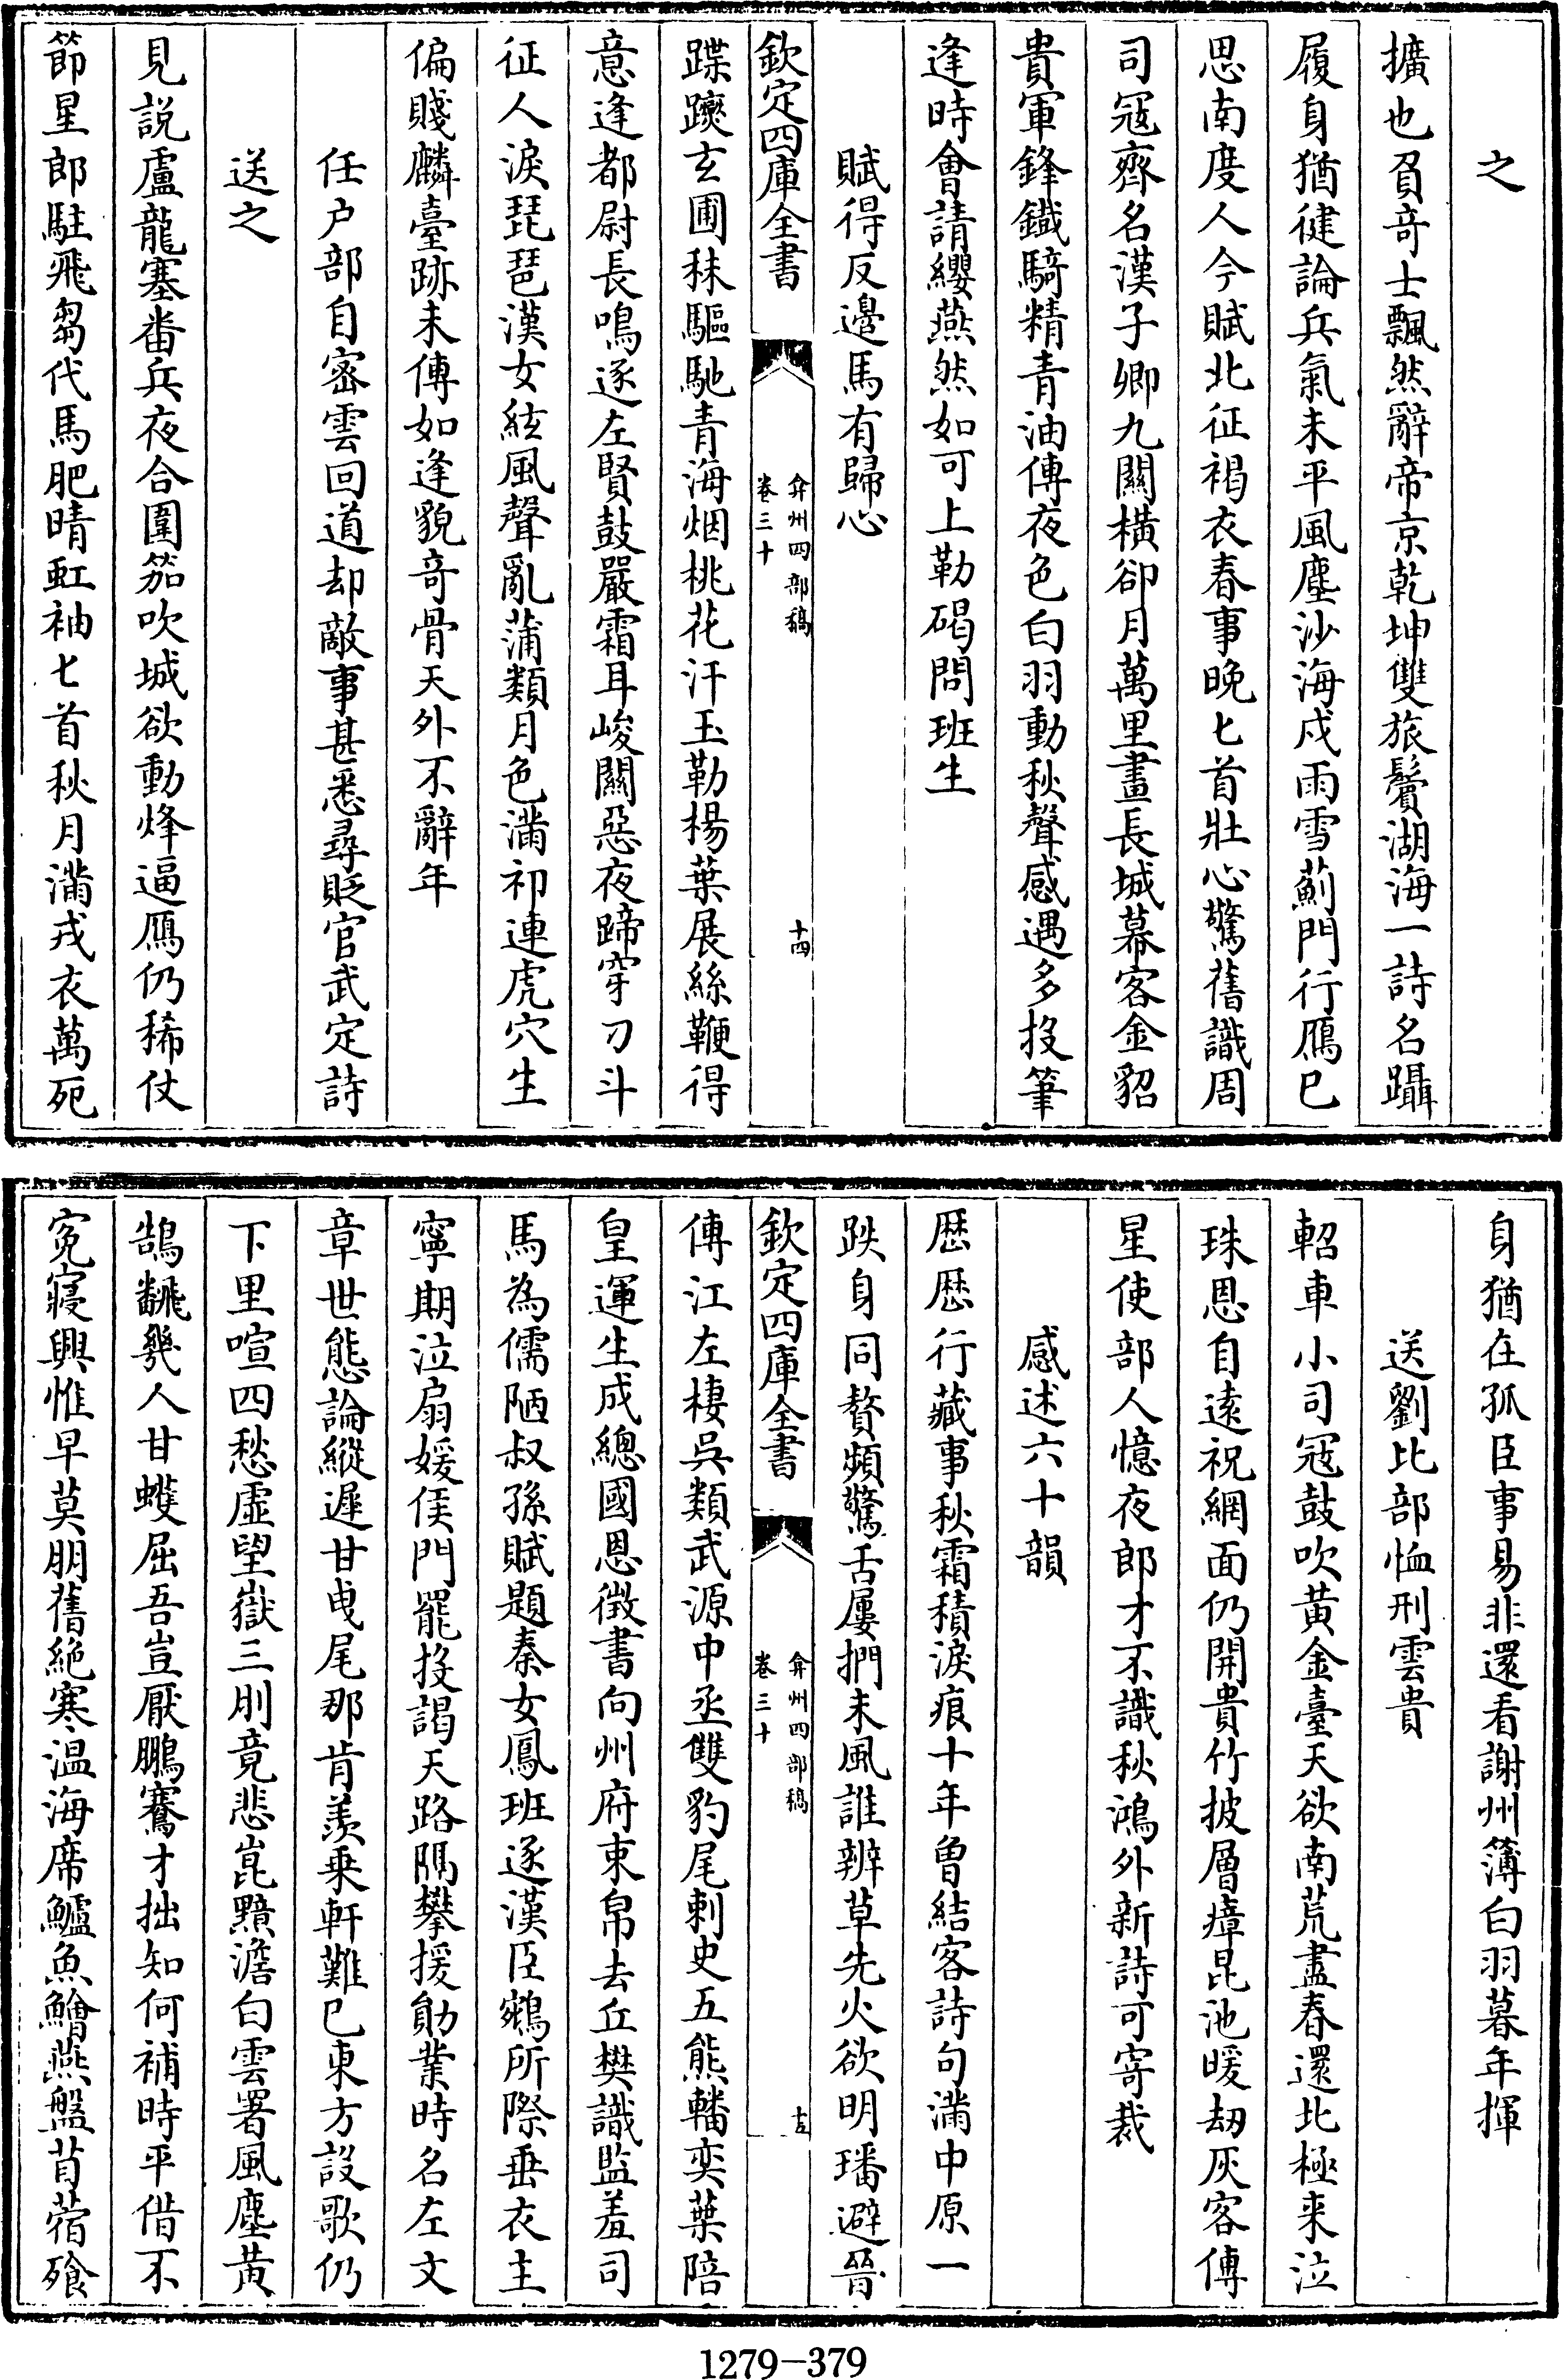 之
擴也負竒士飄然辭帝京乾坤雙旅鬢湖海一詩名躡
履身猶健論兵氣未平風塵沙海戍雨雪薊門行鴈已
思南度人今賦北征褐衣春事晚匕首壯心驚舊識周
司冦齊名漢子卿九關橫卻月萬里畫長城幕客金貂
貴軍鋒鐡騎精青油傅夜色白羽動秋聲感遇多投筆
逢時會請纓燕然如可上勒碣問班生
賦得反邉馬有歸心
欽定四庫全書
弇州四部稿
卷三十
十四
蹀躞玄圃秣驅馳青海烟桃花汗玉勒楊葉展絲鞭得
意逢都尉長鳴逐左賢鼓嚴霜耳峻關惡夜蹄穿刀斗
征人淚琵琶漢女絃風聲亂蒲類月色滿祁連虎穴生
偏賤麟臺跡未傳如逢貌竒骨天外不辭年
任户部自密雲回道却敵事甚悉尋貶官武定詩
送之
見説盧龍塞番兵夜合圍笳吹城欲動烽逼鴈仍稀仗
節星郎駐飛芻代馬肥晴虹袖匕首秋月滿戎衣萬死
身猶在孤臣事易非還看謝州簿白羽暮年揮
送劉比部恤刑雲貴
軺車小司冦鼓吹黄金臺天欲南荒盡春還北極来泣
珠恩自逺祝網面仍開貴竹披層瘴昆池暖劫灰客傳
星使部人憶夜郎才不識秋鴻外新詩可寄裁
感述六十韻
歴歴行藏事秋霜積淚痕十年曽結客詩句滿中原一
跌身同贅頻驚舌屢捫未風誰辨草先火欲明璠避晉
傳江左棲吳類武源中丞雙豹尾刺史五熊轓奕葉陪
皇運生成總國恩徴書向州府束帛去丘樊識監羞司
馬為儒陋叔孫賦題秦女鳳班逐漢臣鵷所際垂衣主
寧期泣扇媛侯門罷投謁天路隔攀援勛業時名左文
章世態論縱遲甘曵尾那肯羨乗軒難已東方設歌仍
下里喧四愁虚望嶽三刖竟悲崑黯澹白雲署風塵黄
鵠飜幾人甘蠖屈吾豈厭鵬騫才拙知何補時平借不
寃寢興惟早莫朋舊絶寒温海席鱸魚鱠燕盤苜蓿飱
1279-379